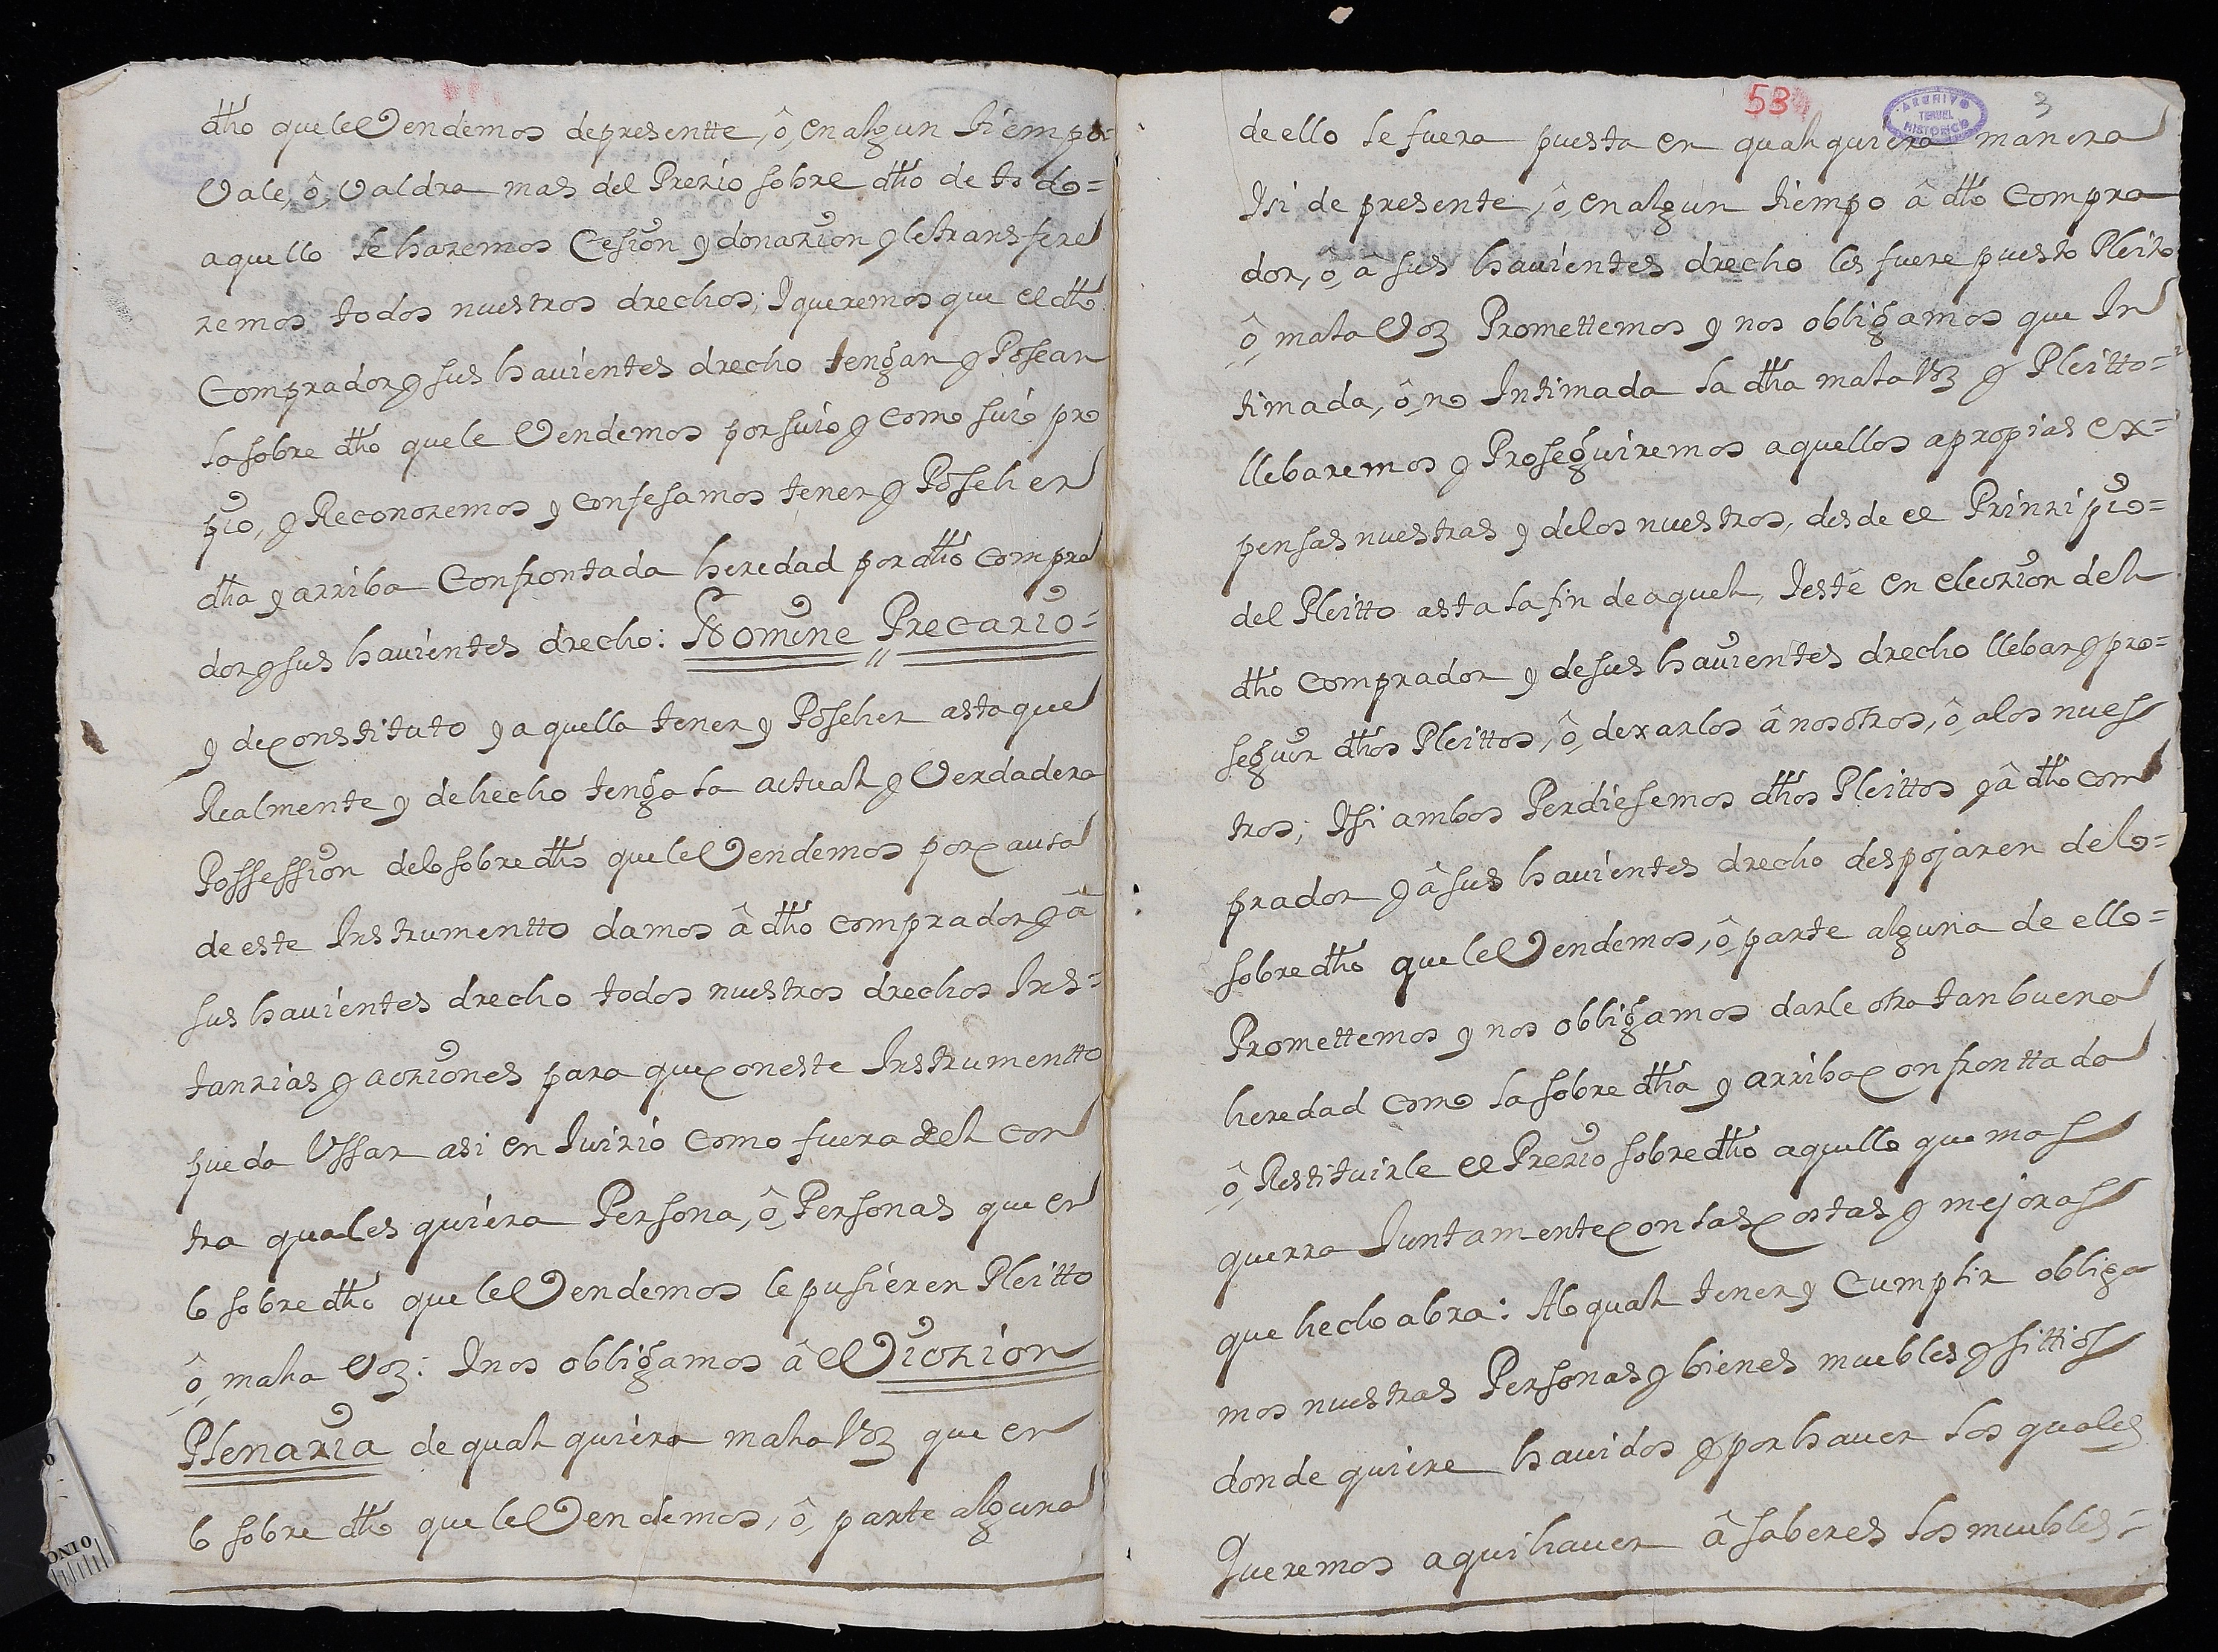 dho que le Vendemos de presentte, ô, en algun tiempo=
Vale, ô, Valdra mas del Prezio sobre dho de todo=
aquello le haremos Cesion y donazion y le transfere
remos todos nuestros drechos; Y queremos que el dho
Comprador y sus havientes drecho tengan y Posean
lo sobre dho que le Vendemos por suio y como suio pro
pio, y Reconozemos y confesamos tener y Poseher
dha y arriba Confrontada heredad por dho compra
dor y sus havientes drecho: Nomine Precario=
y de constituto y aquella tener y Poseher asta que
Realmente y de hecho tenga la actual y Verdadera
Possession delo sobre dho que le Vendemos por causa
de este Instrumentto damos â dho comprador y â
sus havientes drecho todos nuestros drechos Ins=
tanzias y acziones para que con este Instrumentto
pueda Ussar asi en Juizio como fuera del con
tra quales quiera Persona, ô, Personas que en
lo sobre dho que le Vendemos le pusieren Pleitto
ô, mala Voz: Y nos obligamos â eViczion
Plenaria de qual quiera mala Voz que en
lo sobre dho que le Vendemos, ô, parte alguna
53
3
ARCHIVO
TERUEL
HISTORICO
de ello le fuera puesta en qual quiera manera
Y si de presente, ô, en algun tiempo â dho Compra
dor, ô, â sus havientes drecho les fuere puesto Pleito
ô, mala Voz Promettemos y nos obligamos que In
timada, ô, no Intimada la dha mala Voz y Pleitto=
llebaremos y Proseguiremos aquellos a propias ex=
pensas nuestras y delos nuestros, desde el Prinzipio=
del Pleitto asta la fin de aquel, Y estê en eleczion del
dho Comprador y de sus havientes drecho llebar y pro=
seguir dhos Pleittos, ô, dexarlos â nosotros, ô, a los nues
tros; Y si ambos Perdiesemos dhos Pleittos y â dho com
prador y â sus havientes drecho despojaren delo=
sobre dho que le Vendemos, ô, parte alguna de ello=
Promettemos y nos obligamos darle otra tan buena
heredad como la sobre dha y arriba confronttada
ô, Restituirle el Prezio sobre dho aquello que mas
querra Juntamente con las costas y mejoras
que hecho abra: Alo qual tener y Cumplir obliga
mos nuestras Personas y bienes muebles y sittios
donde quiere havidos y por haver los quales
Queremos aqui haver â saberes los muebles=